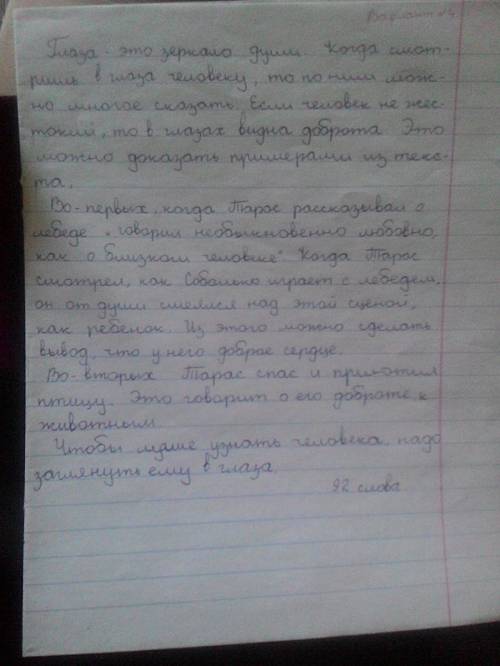 Вариант №4
Глаза - это зеркало души. Когда смот-
ришь в глаза человеку, то по ним мож-
но многое сказать. Если человек не жес-
токий, то в глазах видна доброта. Это
можно доказать примерами из текс-
та.
Во-первых, когда Тарас рассказывал о
лебеде "говорил необыкновенно любовно,
как о близком человеке". Когда Тарас
смотрел, как Соболько играет с лебедем,
он от души смеялся над этой сценой,
как ребенок. Из этого можно сделать
вывод, что у него доброе сердце.
Во-вторых Тарас спас и приютил
птицу. Это говорит о его доброте к
животным.
Чтобы лучше узнать человека, надо
заглянуть ему в глаза.
92 слова